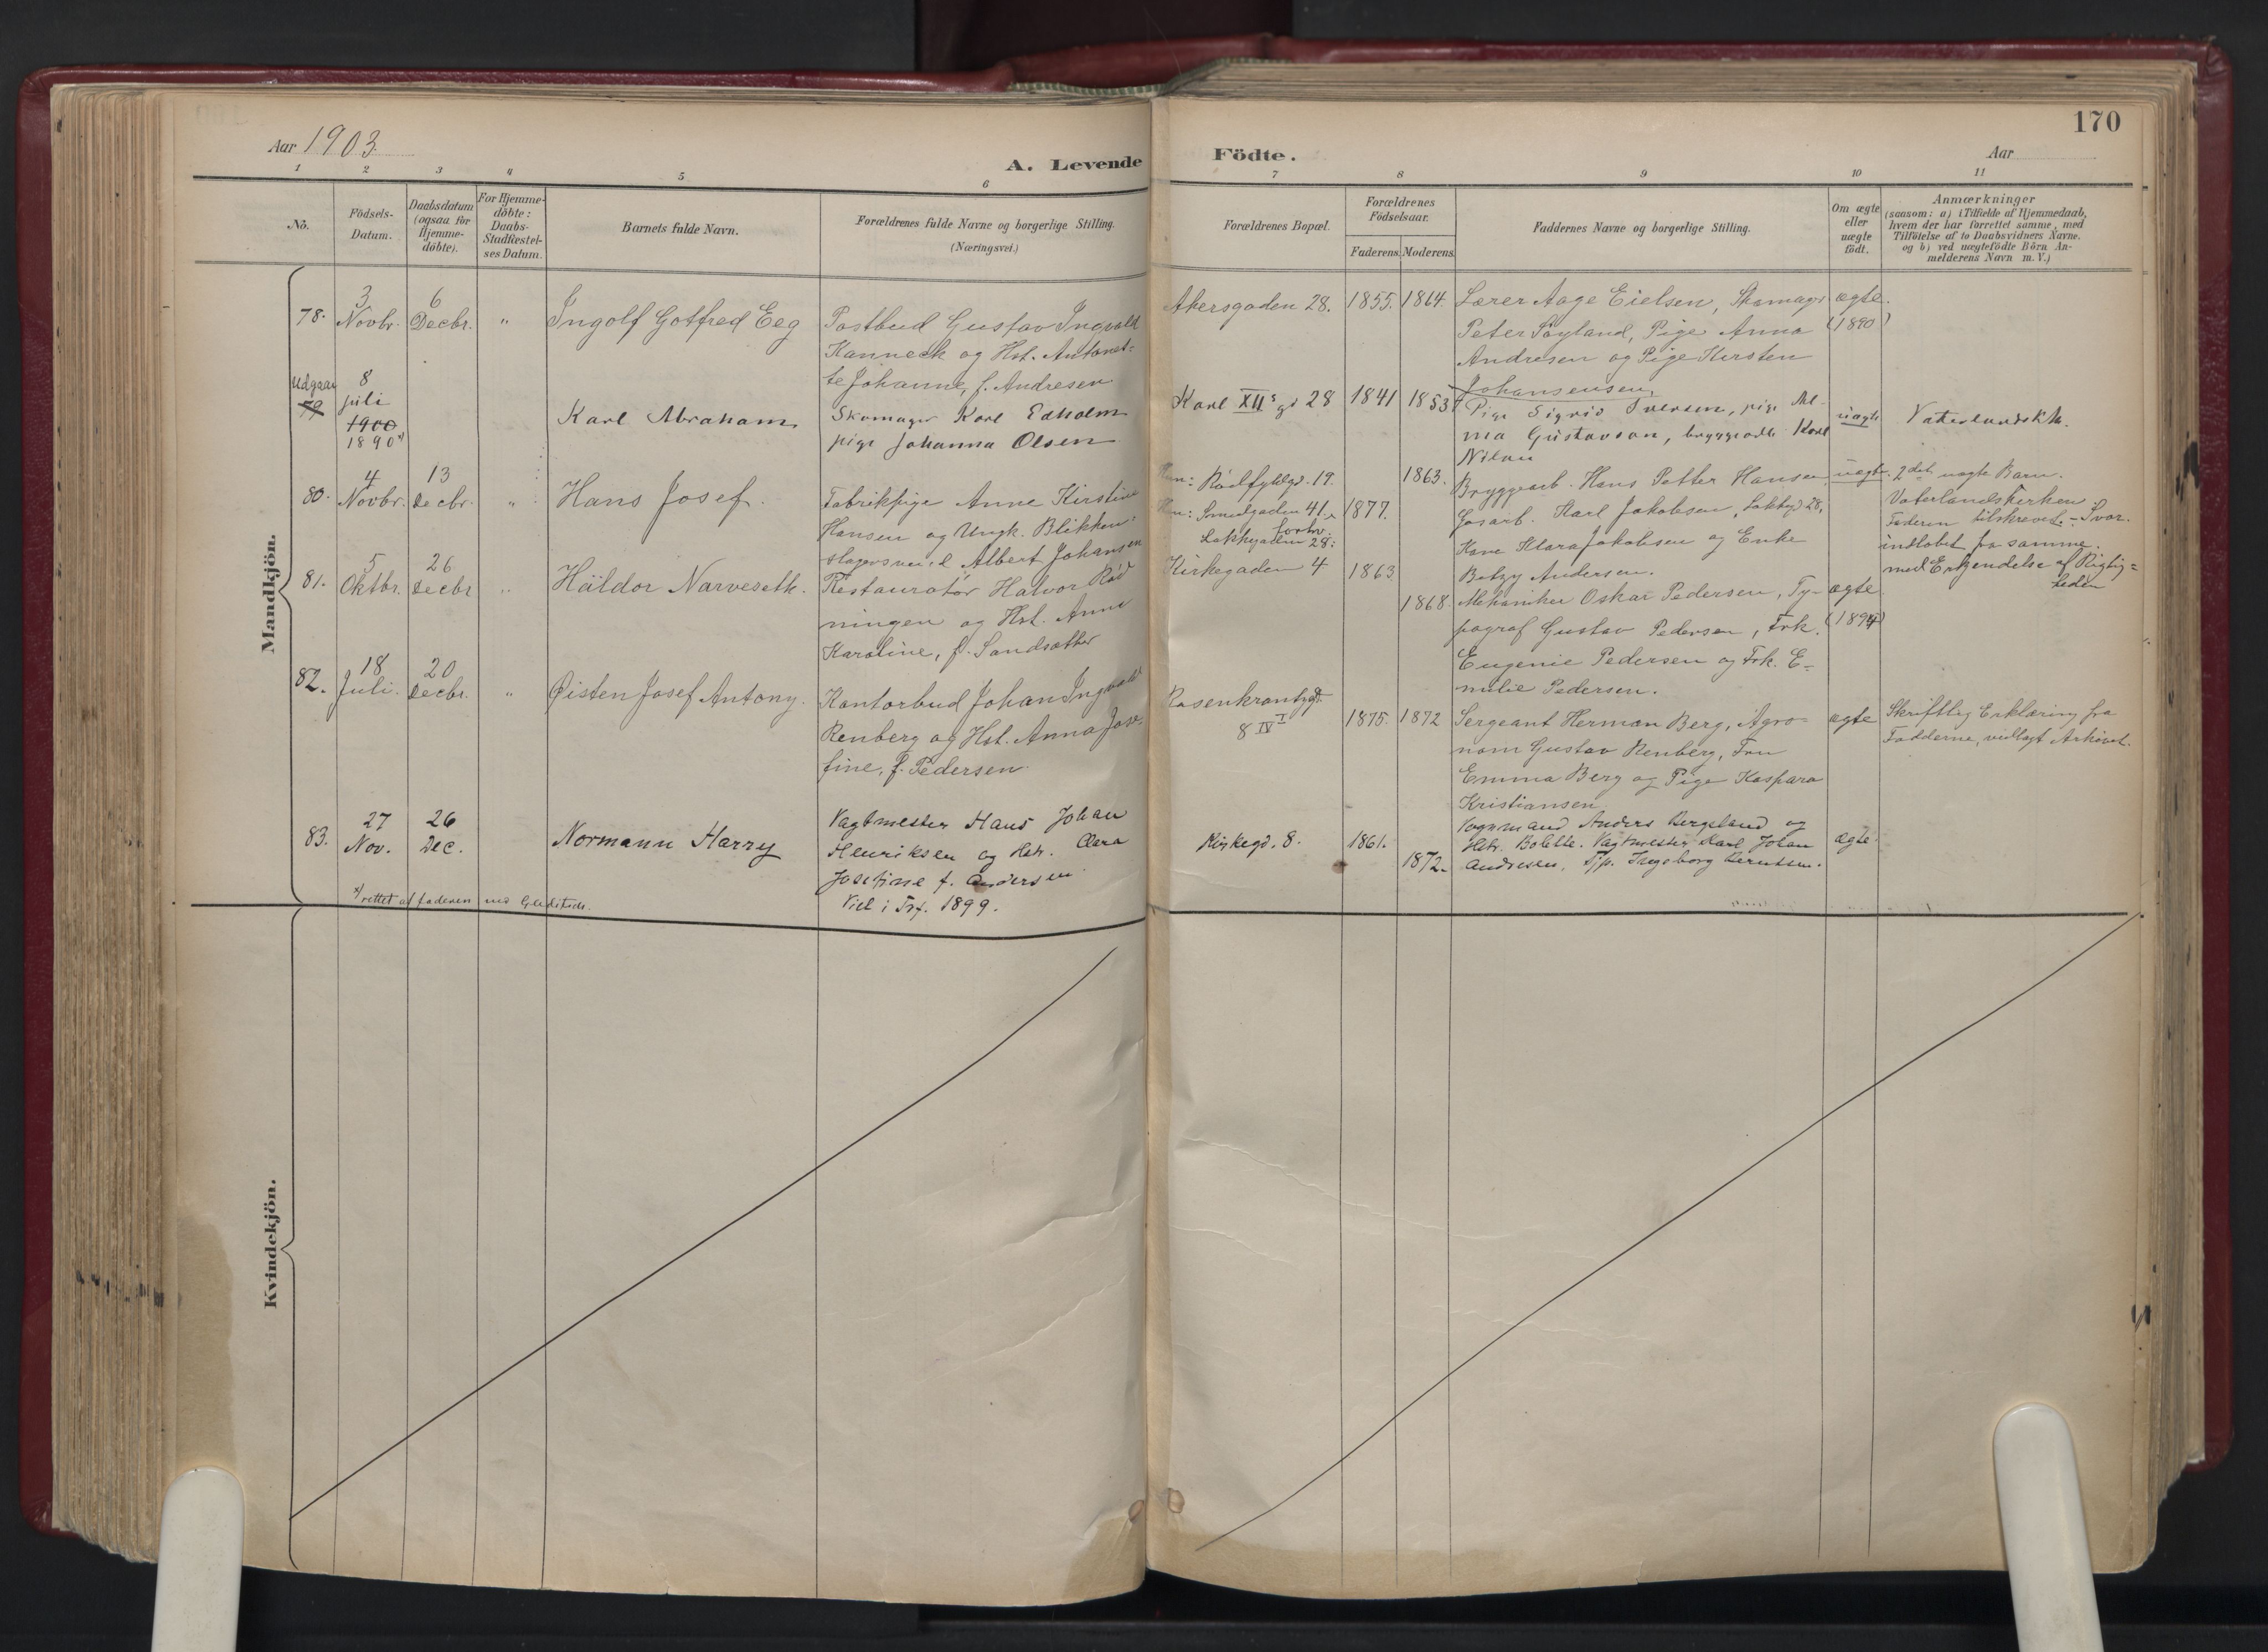 170
Aar 1903.
A. Levende Födte.
Aar
1 2 3 4 5 6 7 8 9 10 11
No.
Födsels-
Datum.
Daabsdatum
(ogsaa for
Hjemme-
döbte).
For Hjemme-
döbte:
Daabs-
Stadfæstel-
ses Datum.
Barnets fulde Navn.
Forældrenes fulde Navne og borgerlige Stilling.
(Næringsvei.)
Forældrenes Bopæl.
Forældrenes
Födselsaar.
Faderens. Moderens.
Faddernes Navne og borgerlige Stilling.
Om ægte
eller
uægte
födt.
Anmærkninger
(saasom: a) i Tilfælde af Hjemmedaab,
hvem der har forrettet samme, med
Tilföielse af to Daabsvidners Navne.
og b) ved uægtefödte Börn An-
melderens Navn m. V.)
Mandkjön.
78.
3
Novbr.
6
Decbr.
"
Ingolf Gotfred Eeg
Postbud Gustav Ingvald
Kanneck og Hst. Antonet-
te Johanne, f. Andresen.
Akersgaden 28.
1855. 1864.
Lærer Aage Eielsen, Skomag.
Peter Söyland, Pige Anna
Andresen og Pige Kirsten
Johansensen,
ægte.
(1890)
Udgaar
79
8
juli
1900
1890 x)
Karl Abraham
Skomager Karl Edholm
pige Johanna Olsen
Karl XII s gd 28
1841 1853
Pige Sigrid Iversen, pige Al-
ma Gustavson, bryggearb. Karl
Nilsen
uægte
Vaterlands K.
80.
4
Novbr.
13
Decbr.
"
Hans Josef.
Fabrikpige Anne Kirstine
Hansen og Ungk. Blikken-
slagersvend Albert Johansen
Hun: Rödfyldgd. 19.
Han: Smedgaden 41,
forhv.
Lakkegaden 28:
1877.
1863.
Bryggearb. Hans Petter Hansen,
Gasarb. Karl Jakobsen, Lakkegd 28,
Kone Klara Jakobsen og Enke
Betzy Andersen.
uægte.
2det uægte Barn.
Vaterlandskirken
Faderen tilskrevet. - Svar
indlöbet fra samme
med Erkjendelse af Rigtig-
heden
81.
5
Oktbr.
26
Decbr
"
Haldor Narveseth.
Restauratör Halvor Röd
ningen og Hst. Anne
Karoline, f. Sandsætter
Kirkegaden 4
1863
1868.
Mekaniker Oskar Pedersen, Ty-
pograf Gustav Pedersen, Frk.
Eugenie Pedersen og Frk. E-
milie Pedersen.
ægte
(1894)
82.
18
Juli.
20
Decbr.
"
Øisten Josef Antony.
Kontorbud Johan Ingvald
Renberg og Hst. Anna Jose-
fine, f. Pedersen.
Rosenkrantzgd.
8 IV I
1875. 1872
Sergeant Herman Berg, Agro-
nom Gustav Renberg, Fru
Emma Berg og Pige Kaspara
Kristiansen
ægte
Skriftlig Erklæring fra
Fadderne, vedlagt Arkivet.
83.
27
Nov.
26
Dec.
Normann Harry
Vagtmester Hans Johan
Henriksen og Hstr. Clara
Josefine f. Andersen
Viet i Trf. 1899.
Kirkegd. 8.
1861.
1872.
Vognmand Anders Bergeland og
Hstr. Bolette. Vagtmester Karl Johan
Andresen, Tjp. Ingeborg Berntsen.
ægte
x) rettet af faderen
Kvindekjön.